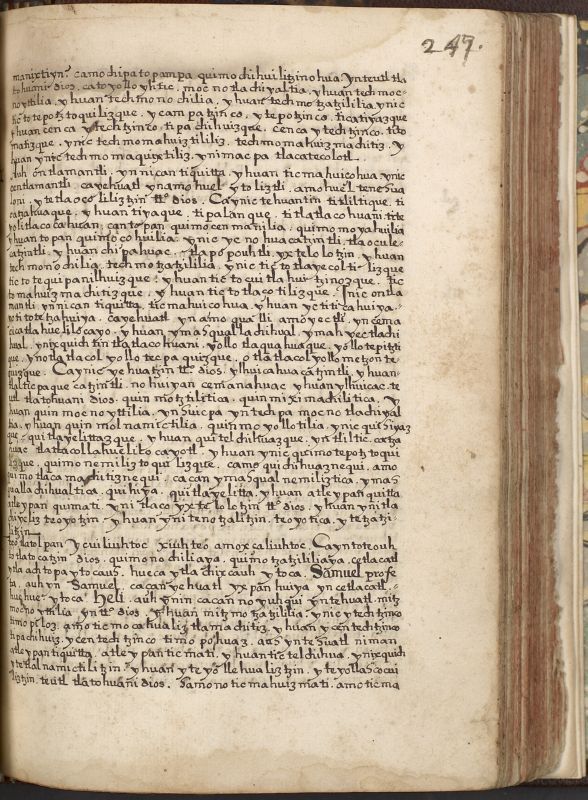 247.
manixtiyn. ca mochipa topampa quimochihuilitzinohua. Yn teutl tla
tohuani dios. ca toyolloytic, mocnotlachiyaltia, yhuan techmoc
noyttilia, yhuan techmonochilia, yhuan techmotzatzililia. ynic
tictotepotztoquilizque, y eam patzinco, y tepotzinco. ticatiyazque
yhuan cenca y techtzinco tipachihuizque. cenca y techtzinco. tito
matizque, ynic techmomahuiztililiz. techmomahuizmachitiz. y
huan ynic techmomaquixtiliz. yn imacpa tlacatecolotl.
Auh ontlamantli. yn nican tiquitta, yhuan ticmahuicohua ynic
centlamantli. ca yehuatl yn amo huel ytoliztli. amo huel tenehua
loni, y tetlaçoliliztzin tt.º dios. Ca ynic tehuantin titliltique. ti
catzahuaque, yhuan tiyaque, tipalanque, titlatlacohuani. tite
yolitlacocahuan. çan topan quimocemanilia, quimomoyahuilia
yhuan topan quimoçohuilia. ynic ycnohuacatzintli, tlaocule
catzintli, yhuan chipahuac, tlapopouhtli yxtelolotzin, yhuan
techmonochilia, techmotzatzililia, ynic tictotlayecoltilizque
tictotequipanilhuizque, yhuan tictocuitlahuitzinozque, tic
tomahuizmachitizque, yhuan tictotlaçotilizque. Inic ontla
mantli yn nican tiquitta, ticmahuicohua, yhuan yc titicahuiya
notitotetzahuiya. ca yehuatl yn amo qualli amo yectli, yn cenca
cicatlahuelilocayo, yhuan ynmasqualla chihual, yn mahyectlachi
hual, ynixquichtin tlatlacohuani, yollotlaquahuaque, yollotepitzti
que, yn otlatlacolyollotecpa quizque, o tlatlacolyollometzonte
quizque. Ca ynic yehuatzin tt.º dios. ylhuicahuacatzintli, yhuan
tlalticpaquecatzintli. nohuiyan cemanahuac yhuan ylhuicac te
utl tlatohuani dios. quinmotztilitica, quinmiximachilitica, y
huan quinmocnoyttilia, ynhuicpa yntechpa mocnotlachiyal
tia, yhuan quinmolnamictilia, quinmoyollotilia, ynic quihiyaz
que, quitlayelittazque, yhuan quitelchihuazque, yn tliltic. catza
huac tlatlacollahuelilocayotl. yhuan ynic quimotepotztoqui
lizque, quimonemiliztoquilizque. camo quichihuaznequi, amo
quimotlacamachitiznequi, ca çan ynmasqual nemiliztica, ynmas
qualla chihualtica, quihiya, quitlayelitta, yhuan atle ypan quitta
atle ypan quimati yn itlaço yxtelolotzin tt.º dios, yhuan yn itla
chiyeliz teoyotzin, yhuan yn itenotzalitzin. teoyotica, ytetzatzi
litzin.
teotlatolpan ycuiliuhtoc xiuhteoamoxcaliuhtoc. Ca yn toteouh
totlatocatzin dios. quimonochiliaya, quimotzatzililiaya, ce tlacatl
ytlaachtopaytocauh. huecaytlachixcauh ytoca. Samuel profe
ta, auh yn Samuel, ca çan yehuatl yxpan huiya yn ce tlacatl
huehue ytoca. Heli. auh quin ca çan no yuhqui yn tehuatl. mitz
mocnoyttilia yn tt.º dios, yhuan mitzmotzatzililia, ynic ytechtzinco
timopiloz. amo ticmocahualiztlamachitiz, yhuan ycentechtzinco
tipachihuiz, ycentechtzinco timopohuaz, auh yntehuatl niman
atle ypan tiquitta, atle ypan ticmati, yhuan tictelchihua, yn ixquich
ytetlolnamictilitzin, yhuan yteyollehualitzin, yteyollaçocui
litzin. teutl tlatohuani dios. Samo no ticmahuizmati. amo ticma